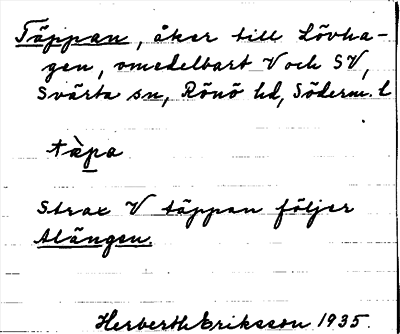 Täppan, åker till Lövha-
gen, omedelbart V och SV,
Svärta sn, Rönö hd, Söderm. l
tàpa
Strax V täppan följer
Alängen.
Herberth Eriksson 1935.